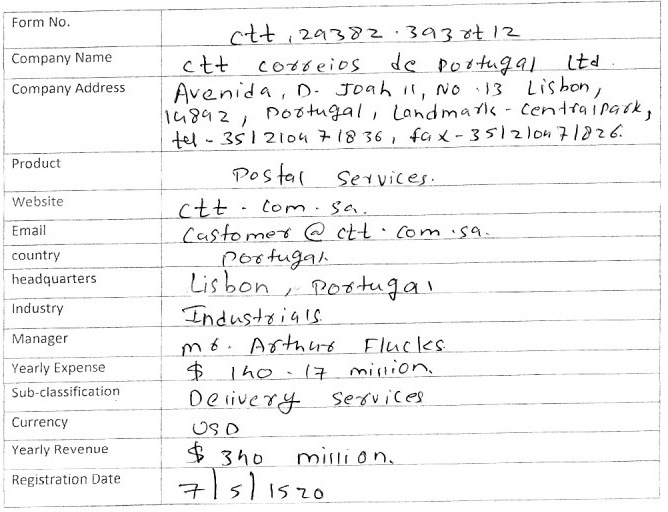 Form No. ctt, 29382.393rt12
Company Name ctt correios de Portugal Ltd.
Company Address Avenida, D. Joah II, No.13 Lisbon,
14892, Portugal, Landmark - centralpark,
tel - 351210471836, fax - 351210471826.
Product Postal Services.
Website ctt.com.sa.
Email Customer@ctt.com.sa.
country Portugal.
headquarters Lisbon, Portugal
Industry Industrials
Manager mr. Arthur Flucks
Yearly Expense $ 140.17 million.
Sub-classification Delivery services
Currency USD
Yearly Revenue $ 340 million.
Registration Date 7/5/1520